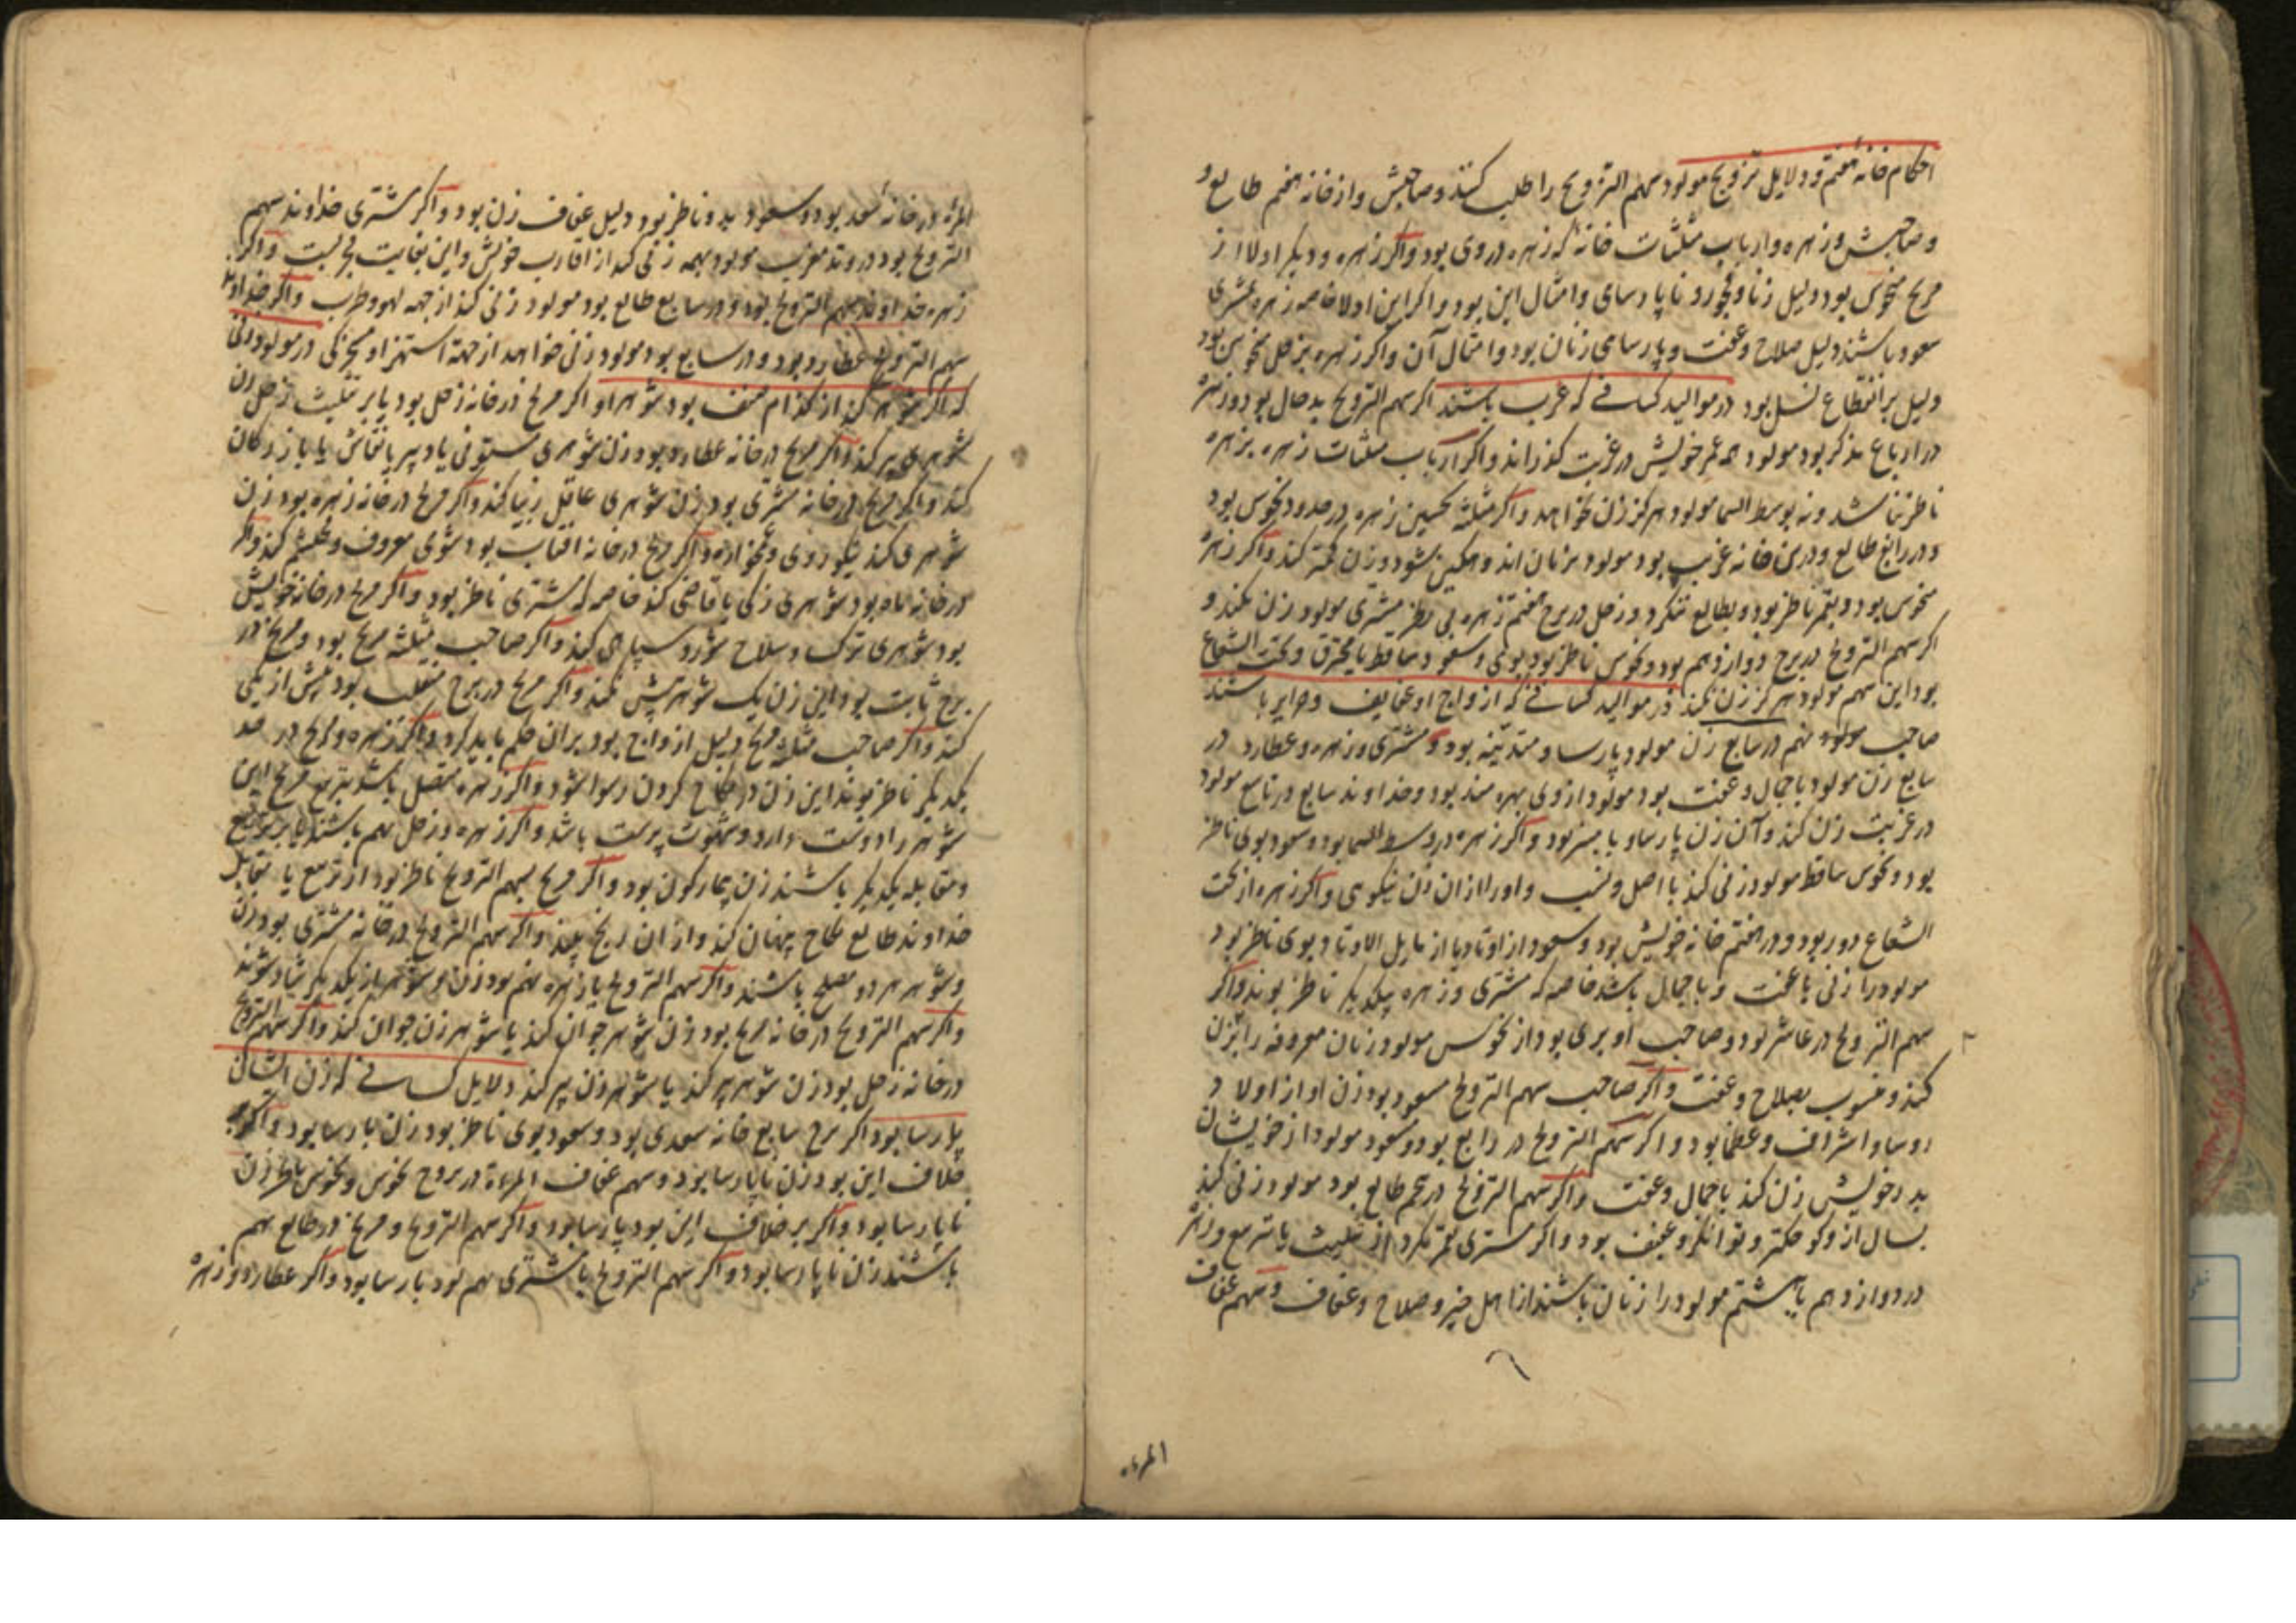 احکام خانهٔ هفتم و دلایل تزویج مولود سهم التزویج را طلب کنند و صاحبش و از خانه هفتم طالع و
و صاحبش و زهره و ارباب مثلثات خانه که زهره در وی بود و اگر زهره و دیگر ادلا از
مریخ منحوس بود دلیل زنا و فجور و ناپارسای و امثال این بود و اگر این ادلا خاصه زهره مشتری
سعود باشند دلیل صلاح و عفت و پارسای زنان بود و امثال آن و اگر زهره بزحل منحوس بود
دلیل بر انقطاع نسل بود در موالید کسانے که عزب باشند اگر سهم التزویج بد حال بود و زهره
در ارباع مذکر بود مولود همه عمر خویش در عزبت گذراند و اگر ارباب مثلثات زهره بزهره
ناظر نباشد و نه بوسط السما مولود هرگز زن نخواهد و اگر مثلثه نخستین زهره در حدود نحوس بود
و در رابع طالع و در خانه غریب بود مولود بزنان اندوهگین شود و زن کمتر کند و اگر زهره
منحوس بود و بقمر ناظر بود و بطالع ننگرد و زحل در برج هفتم زهره بی نظر مشتری مولود زن نکند و
اگر سهم التزویج در برج دوازدهم بود و نحوس ناظر بود بوی و سعود ساقط یا محترق و تحت الشعاع
بود این سهم مولود هرگز زن نکند در موالید کسانے که ازواج او عفایف و حرایر باشند
صاحب سهم در سابع زن مولود پارسا و متدینه بود و مشتری و زهره و عطارد در
سابع زن مولود با جمال و عفت بود مولود از وی بهره مند بود و خداوند سابع در تاسع مولود
در غربت زن کند و آن زن پارسا و با بود و اگر زهره در وسط السما بود و سعود بوی ناظر
بود و نحوس ساقط مولود زنی کند با اصل و نسب و اولاد از ان زن نیکوی و اگر زهره از تحت
الشعاع دور بود و در هفتم خانه خویش بود و سعود از اوتاد یا از مایل الاوتاد بوی ناظر بود
مولود را زنی با عفت و با جمال باشد خاصه که مشتری و زهره بیکدیگر ناظر بوند و اگر
سهم التزویج در عاشر بود و صاحب او بری بود از نحوس مولود زنان معروفه را بزن
کند و منسوب بصلاح و عفت و اگر صاحب سهم التزویج مسعود بود زن او از اولاد
روسا و اشراف و عظما بود و اگر سهم التزویج در رابع بود و مسعود مولود از خویشان
پدر خویش زن کند با جمال و عفت و اگر سهم التزویج در پنجم طالع بود مولود زنی کند
بسال از وی کوچکتر و توانگر و عفیف بود و اگر مشتری بقمر نگرد از تثلیث یا تربیع و زهره
در دوازدهم یا بیستم مولود را زنان باشند از اهل خیر و صلاح و عفاف و سهم عفاف
المرءة
المرأة در خانهٔ سعد بود و سعود بدو ناظر بود دلیل عفاف زن بود و اگر مشتری خداوند سهم
التزویج بود در وتد مغرب مولود بهمه زنی کند از اقارب خویش و این بغایت مجربست و اگر
زهره خداوند سهم التزویج بود و در سابع طالع بود مولود زنی کند از جهه لهو و طرب و اگر خداوند
سهم التزویج عطارد بود و در سابع بود مولود زنی خواهد از جهة استهزا و مسخرگی در مولود زنی
که اگر شوهر کند از کدام صنف بود شوهر او اگر مریخ در خانه زحل بود یا بر تثلیث زحل زن
شوهری پیر کند و اگر مریخ در خانه عطارد بود زن شوهری ستوفی یا دبیر یا نقاش یا بازرگان
کند و اگر مریخ در خانه مشتری بود زن شوهری عاقل زیبا کند و اگر مریخ در خانه زهره بود زن
شوهری کند نیکو روی و غمخواره و اگر مریخ در خانه آفتاب بود شوی معروف و محتشم کند و اگر
در خانه ماه بود شوهری زکی یا قاضی کند خاصه که مشتری ناظر بود و اگر مریخ در خانه خویش
بود شوهری ترک و سلاح شور و سپاهی کند و اگر صاحب مثلثه مریخ بود و مریخ در
برج ثابت بود این زن یک شوهر بیش نکند و اگر مریخ در برج منقلب بود بیش از یکی
کند و اگر صاحب مثلثه مریخ دلیل ازواج بود بران حکم باید کرد و اگر زهره و مریخ در حد
یکدیگر ناظر بوند این زن در نکاح کردن رسوا شود و اگر زهره متصل باشد بتربیع مریخ این
شوهر را دوست دارد و شهوت پرست باشد و اگر زهره و زحل بهم باشند یا بر تربیع
و مقابله یکدیگر باشند زن بیمارگون بود و اگر مریخ بسهم التزویج ناظر بود از تربیع یا تقابل
خداوند طالع نکاح پنهان کند و از ان رنج بیند و اگر سهم التزویج در خانه مشتری بود زن
و شوهر هر دو مصلح باشند و اگر سهم التزویج با زهره بهم بود زن و شوهر از یکدیگر شاد شوند
و اگر سهم التزویج در خانه مریخ بود زن شوهر جوان کند یا شوهر زن جوان کند و اگر سهم التزویج
در خانه زحل بود زن شوهر پیر کند یا شوهر زن پیر کند دلایل کسانے که زن ایشان
پارسا بود اگر برج سابع خانه سعدی بود و سعود بوی ناظر بود زن پارسا بود و اگر بر
خلاف این بود زن ناپارسا بود و سهم عفاف المرءة در بروج نحوس و نحوس ناظر زن
ناپارسا بود و اگر بر خلاف این بود پارسا بود و اگر سهم التزویج و مریخ در طالع بهم
باشند زن ناپارسا بود و اگر سهم التزویج با مشتری بهم بود پارسا بود و اگر عطارد و زهره